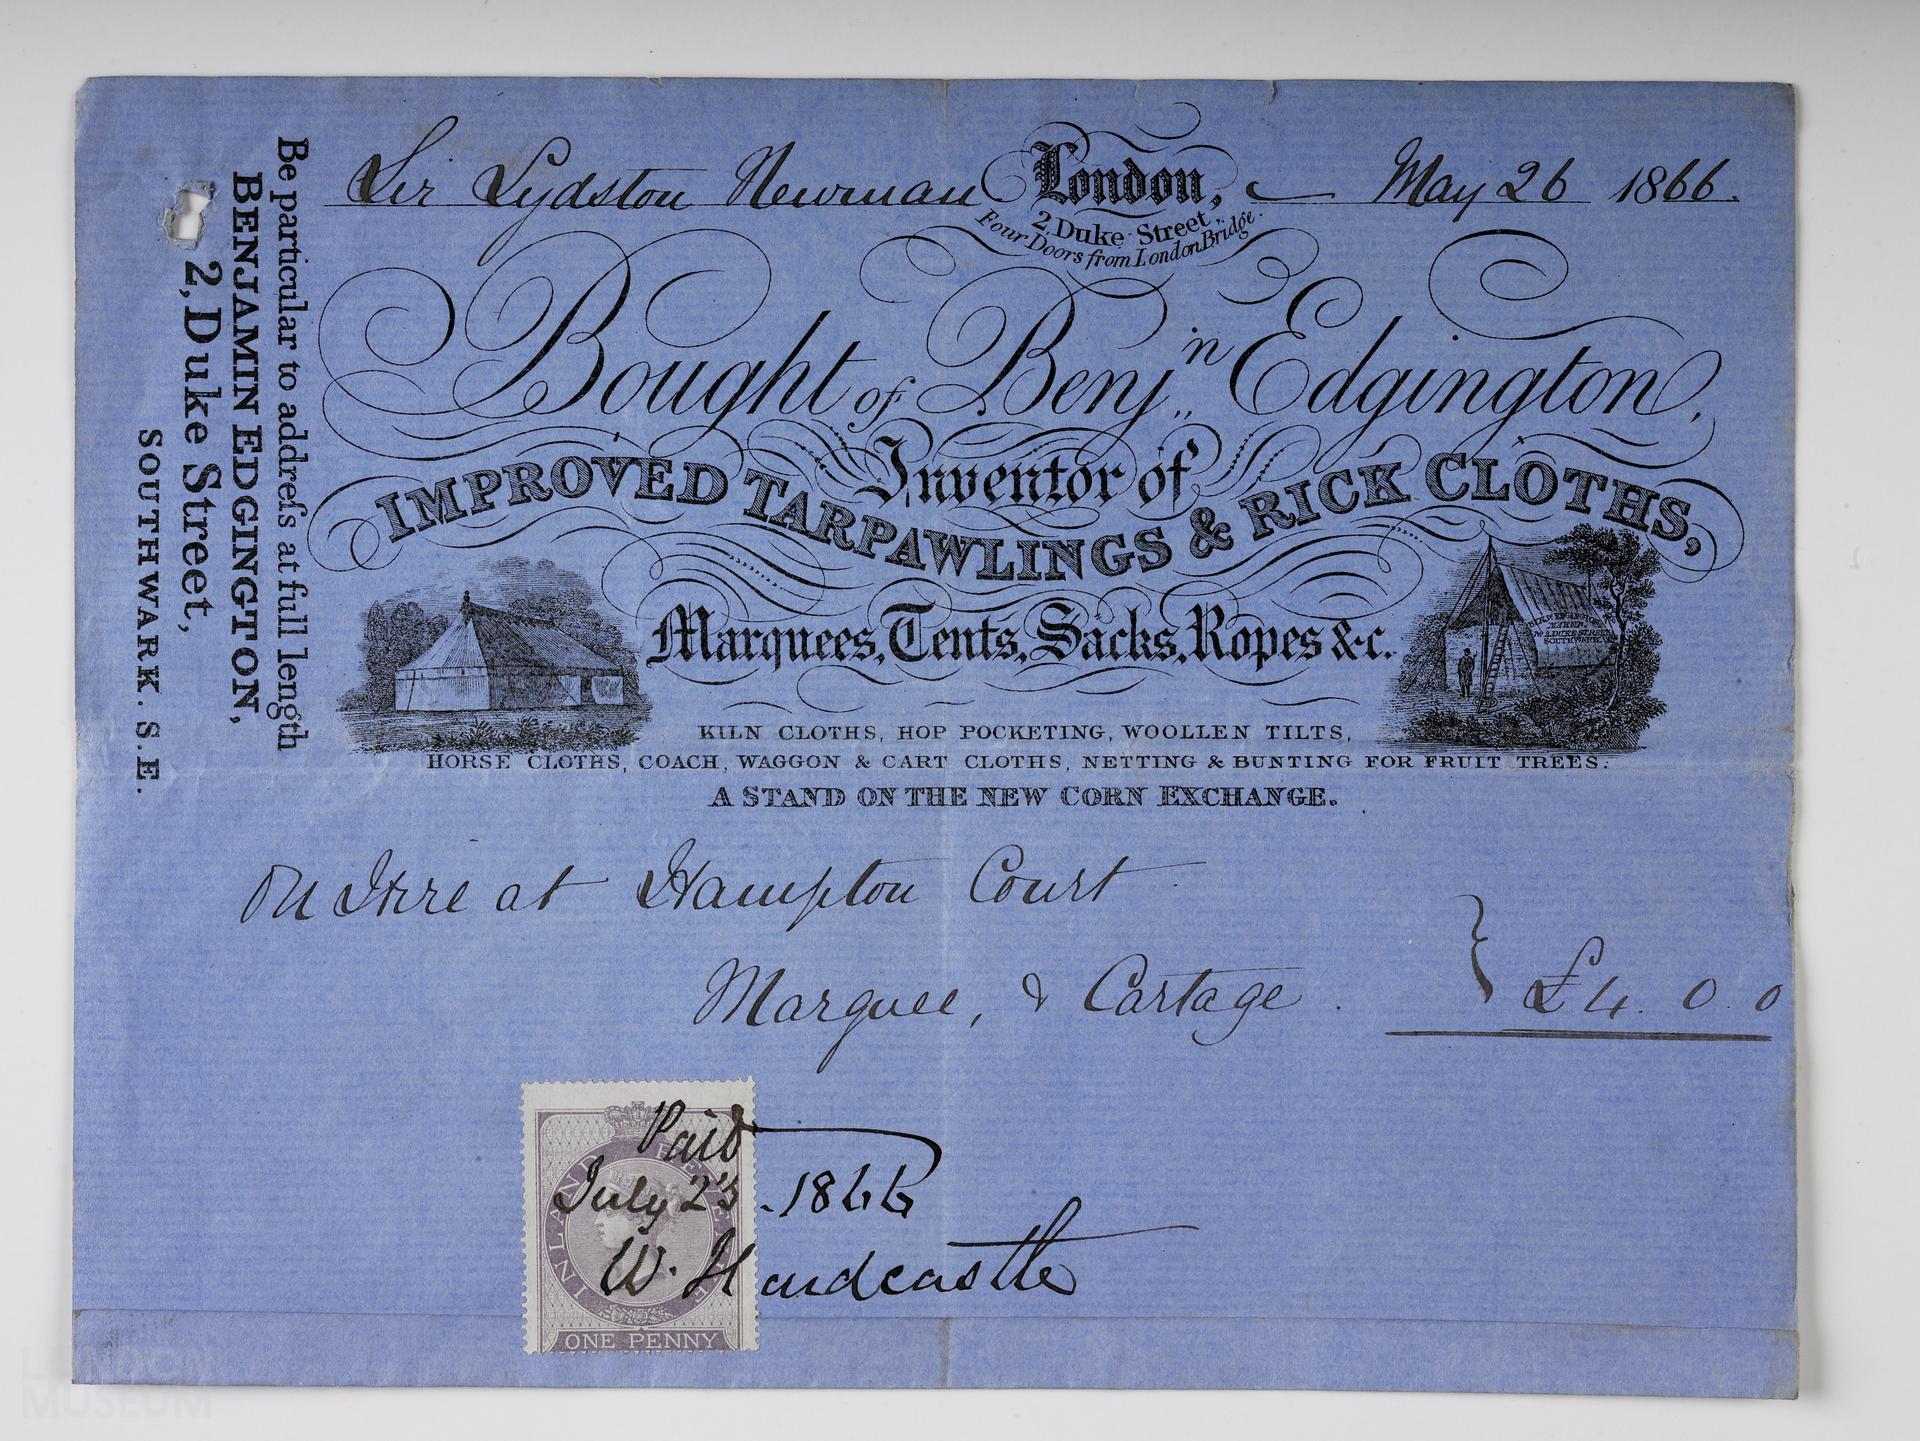 Sir Lydston Newman London, May 26 1866.
2, Duke Street,
Four Doors from London Bridge.
Bought of Benjn Edgington,
Inventor of
IMPROVED TARPAWLINGS & RICK CLOTHS,
Marquees, Tents, Sacks, Ropes &c.
KILN CLOTHS, HOP POCKETING, WOOLLEN TILTS,
HORSE CLOTHS, COACH, WAGGON & CART CLOTHS, NETTING & BUNTING FOR FRUIT TREES.
A STAND ON THE NEW CORN EXCHANGE.
Be particular to addreſs at full length
BENJAMIN EDGINGTON,
2, Duke Street,
SOUTHWARK. S.E.
BENJN EDGINGTON
MAKER
No 2 DUKE STREET
SOUTHWARK
On Hire at Hampton Court
Marquee, & Cartage. } £4. 0. 0
Paid
July 23. 1866
W. Hardcastle
INLAND REVENUE
ONE PENNY
LONDON
MUSEUM